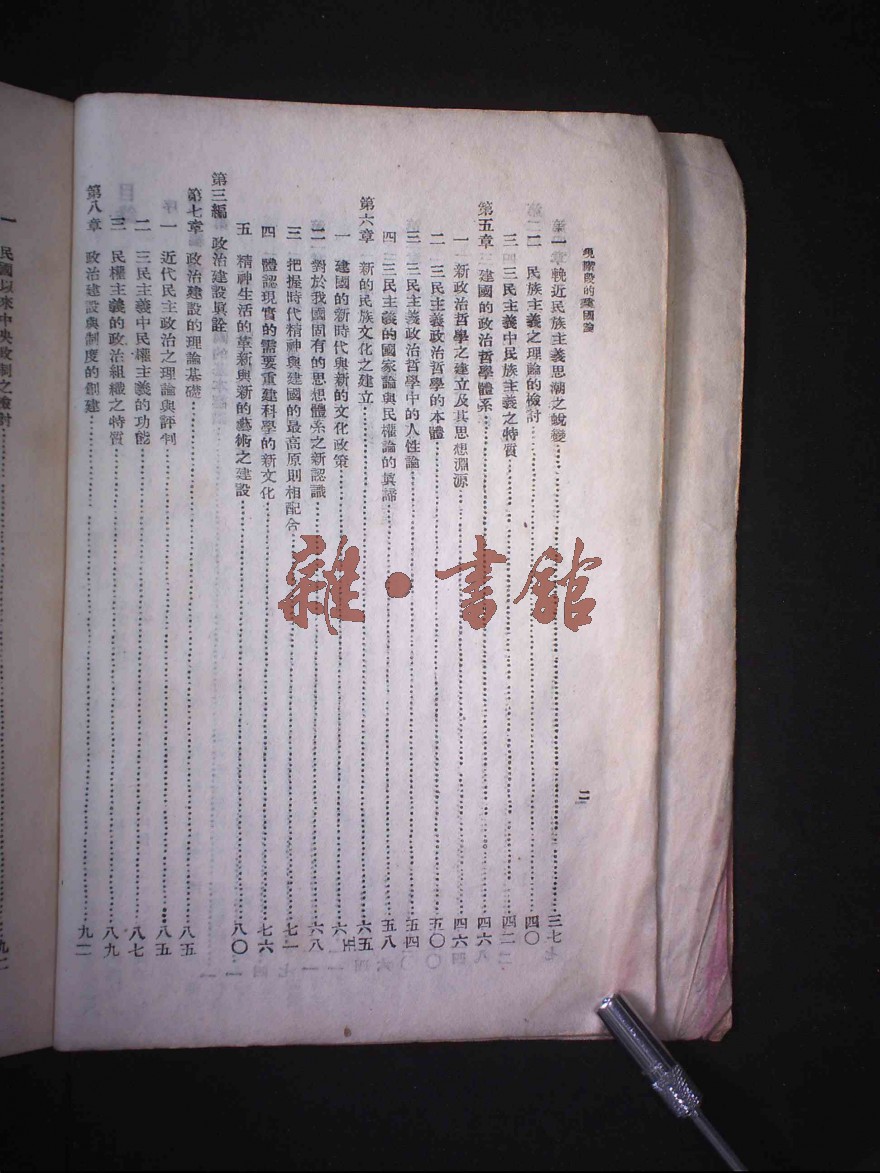 現階段的建國論
二
一 輓近民族主義思潮之蛻變……三七
二 民族主義之理論的檢討……四〇
三 三民主義中民族主義之特質……四二
第五章 建國的政治哲學體系……四六
一 新政治哲學之建立及其思想淵源……四六
二 三民主義政治哲學的本體……五〇
三 三民主義政治哲學中的人性論……五四
四 三民主義的國家論與民權論的眞諦……五八
第六章 新的民族文化之建立……六五
一 建國的新時代與新的文化政策……六五
二 對於我國固有的思想體系之新認識……六八
三 把握時代精神與建國的最高原則相配合……七一
四 體認現實的需要重建科學的新文化……七六
五 精神生活的革新與新的藝術之建設……八〇
第三編 政治建設眞詮
第七章 政治建設的理論基礎……八五
一 近代民主政治之理論與評判……八五
二 三民主義中民權主義的功能……八七
三 民權主義的政治組織之特質……八九
第八章 政治建設與制度的創建……九二
一 民國以來中央政制之檢討……九二
雜·書館